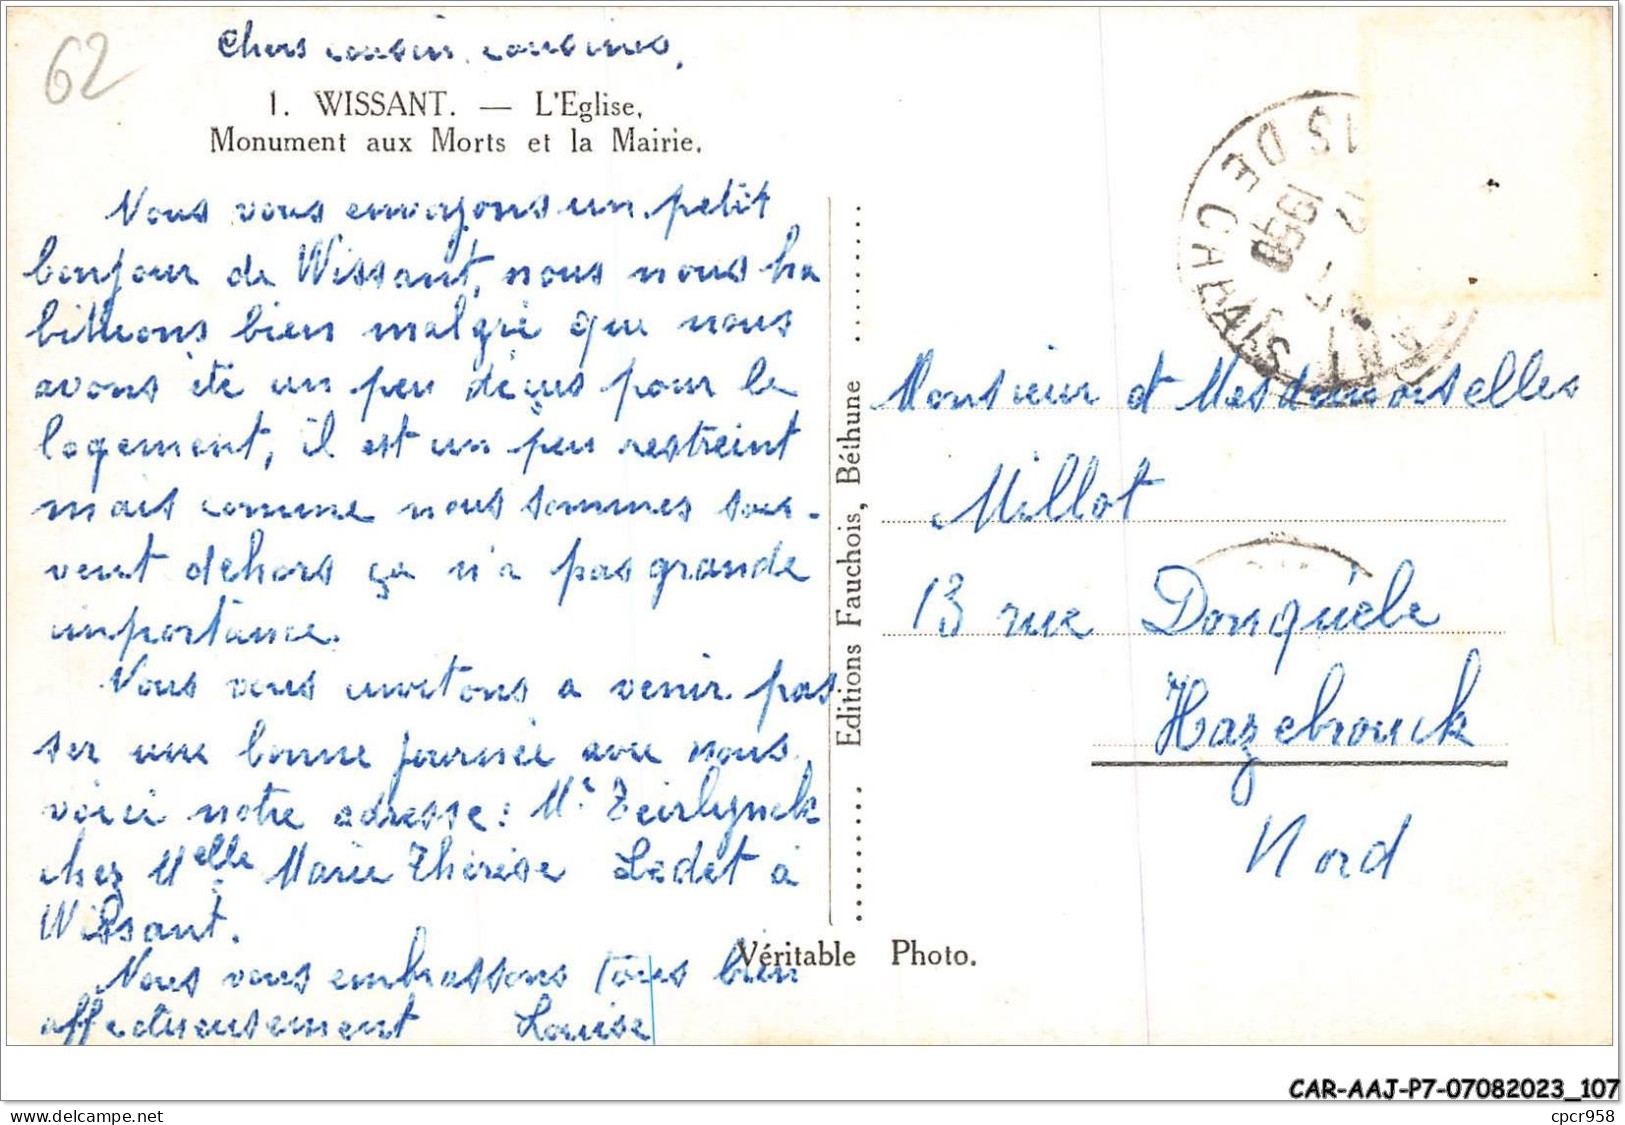 62
Chers cousin, cousines,
1. WISSANT. — L'Eglise,
Monument aux Morts et la Mairie.
Nous vous envoyons un petit
bonjour de Wissant, nous nous ha
bituons bien malgré que nous
avons été un peu déçus pour le
logement, il est un peu restreint
mais comme nous sommes sou-
vent dehors ça n'a pas grande
importance.
Nous vous invitons a venir pas
ser une bonne journée avec nous
voici notre adresse : Mr Teirlynck
chez Melle Marie Thérèse Ledet à
Wissant.
Nous vous embrassons tous bien
affectueusement Louise
Editions Fauchois, Béthune
Véritable Photo.
PAS DE CALAIS
1958
Monsieur et Mesdemoiselles
Millot
13 rue Donquèle
Hazebrouck
Nord
CAR-AAJ-P7-07082023_107
www.delcampe.net
cpcr958